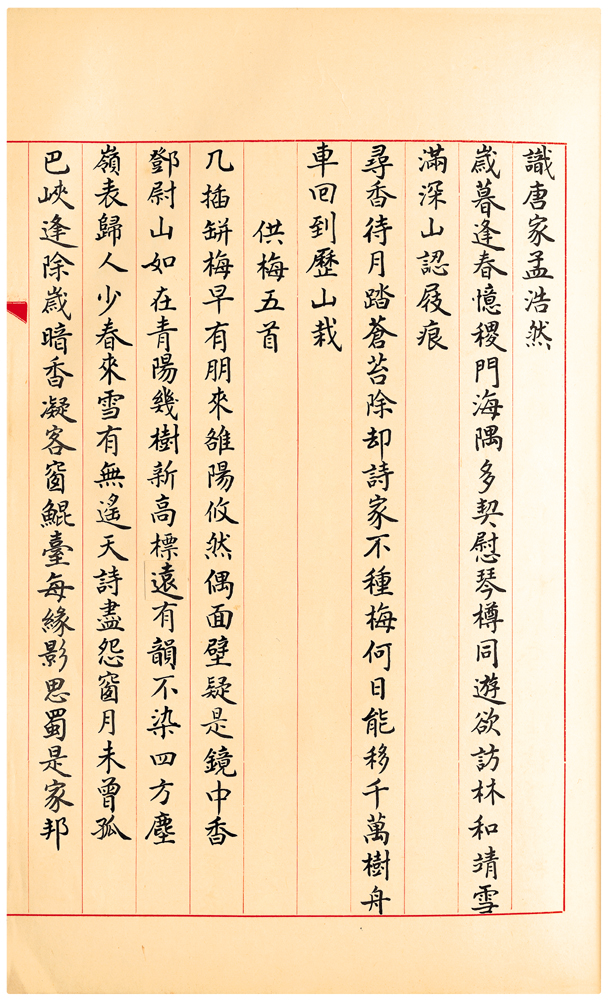 識唐家孟浩然
歲暮逢春憶稷門海隅多契慰琴樽同遊欲訪林和靖雪
滿深山認屐痕
尋香待月踏蒼苔除却詩家不種梅何日能移千萬樹舟
車回到歷山栽
供梅五首
几插缾梅早有朋來雒陽攸然偶面壁疑是鏡中香
鄧尉山如在青陽幾樹新高標遠有韻不染四方塵
嶺表歸人少春來雪有無遙天詩盡怨窗月未曾孤
巴峽逢除歲暗香凝客窗鯤臺每緣影思蜀是家邦